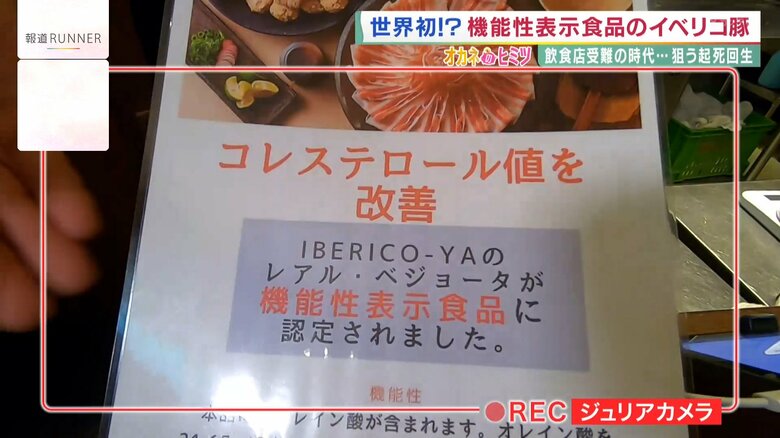 報道RUNNER
世界初!? 機能性表示食品のイベリコ豚
オカネのヒミツ
飲食店受難の時代… 狙う起死回生
コレステロール値を
改善
IBERICO-YAの
レアル・ベジョータが
機能性表示食品に
認定されました。
機能性
レイン酸が含まれます。オレイン酸を
REC ジュリアカメラ